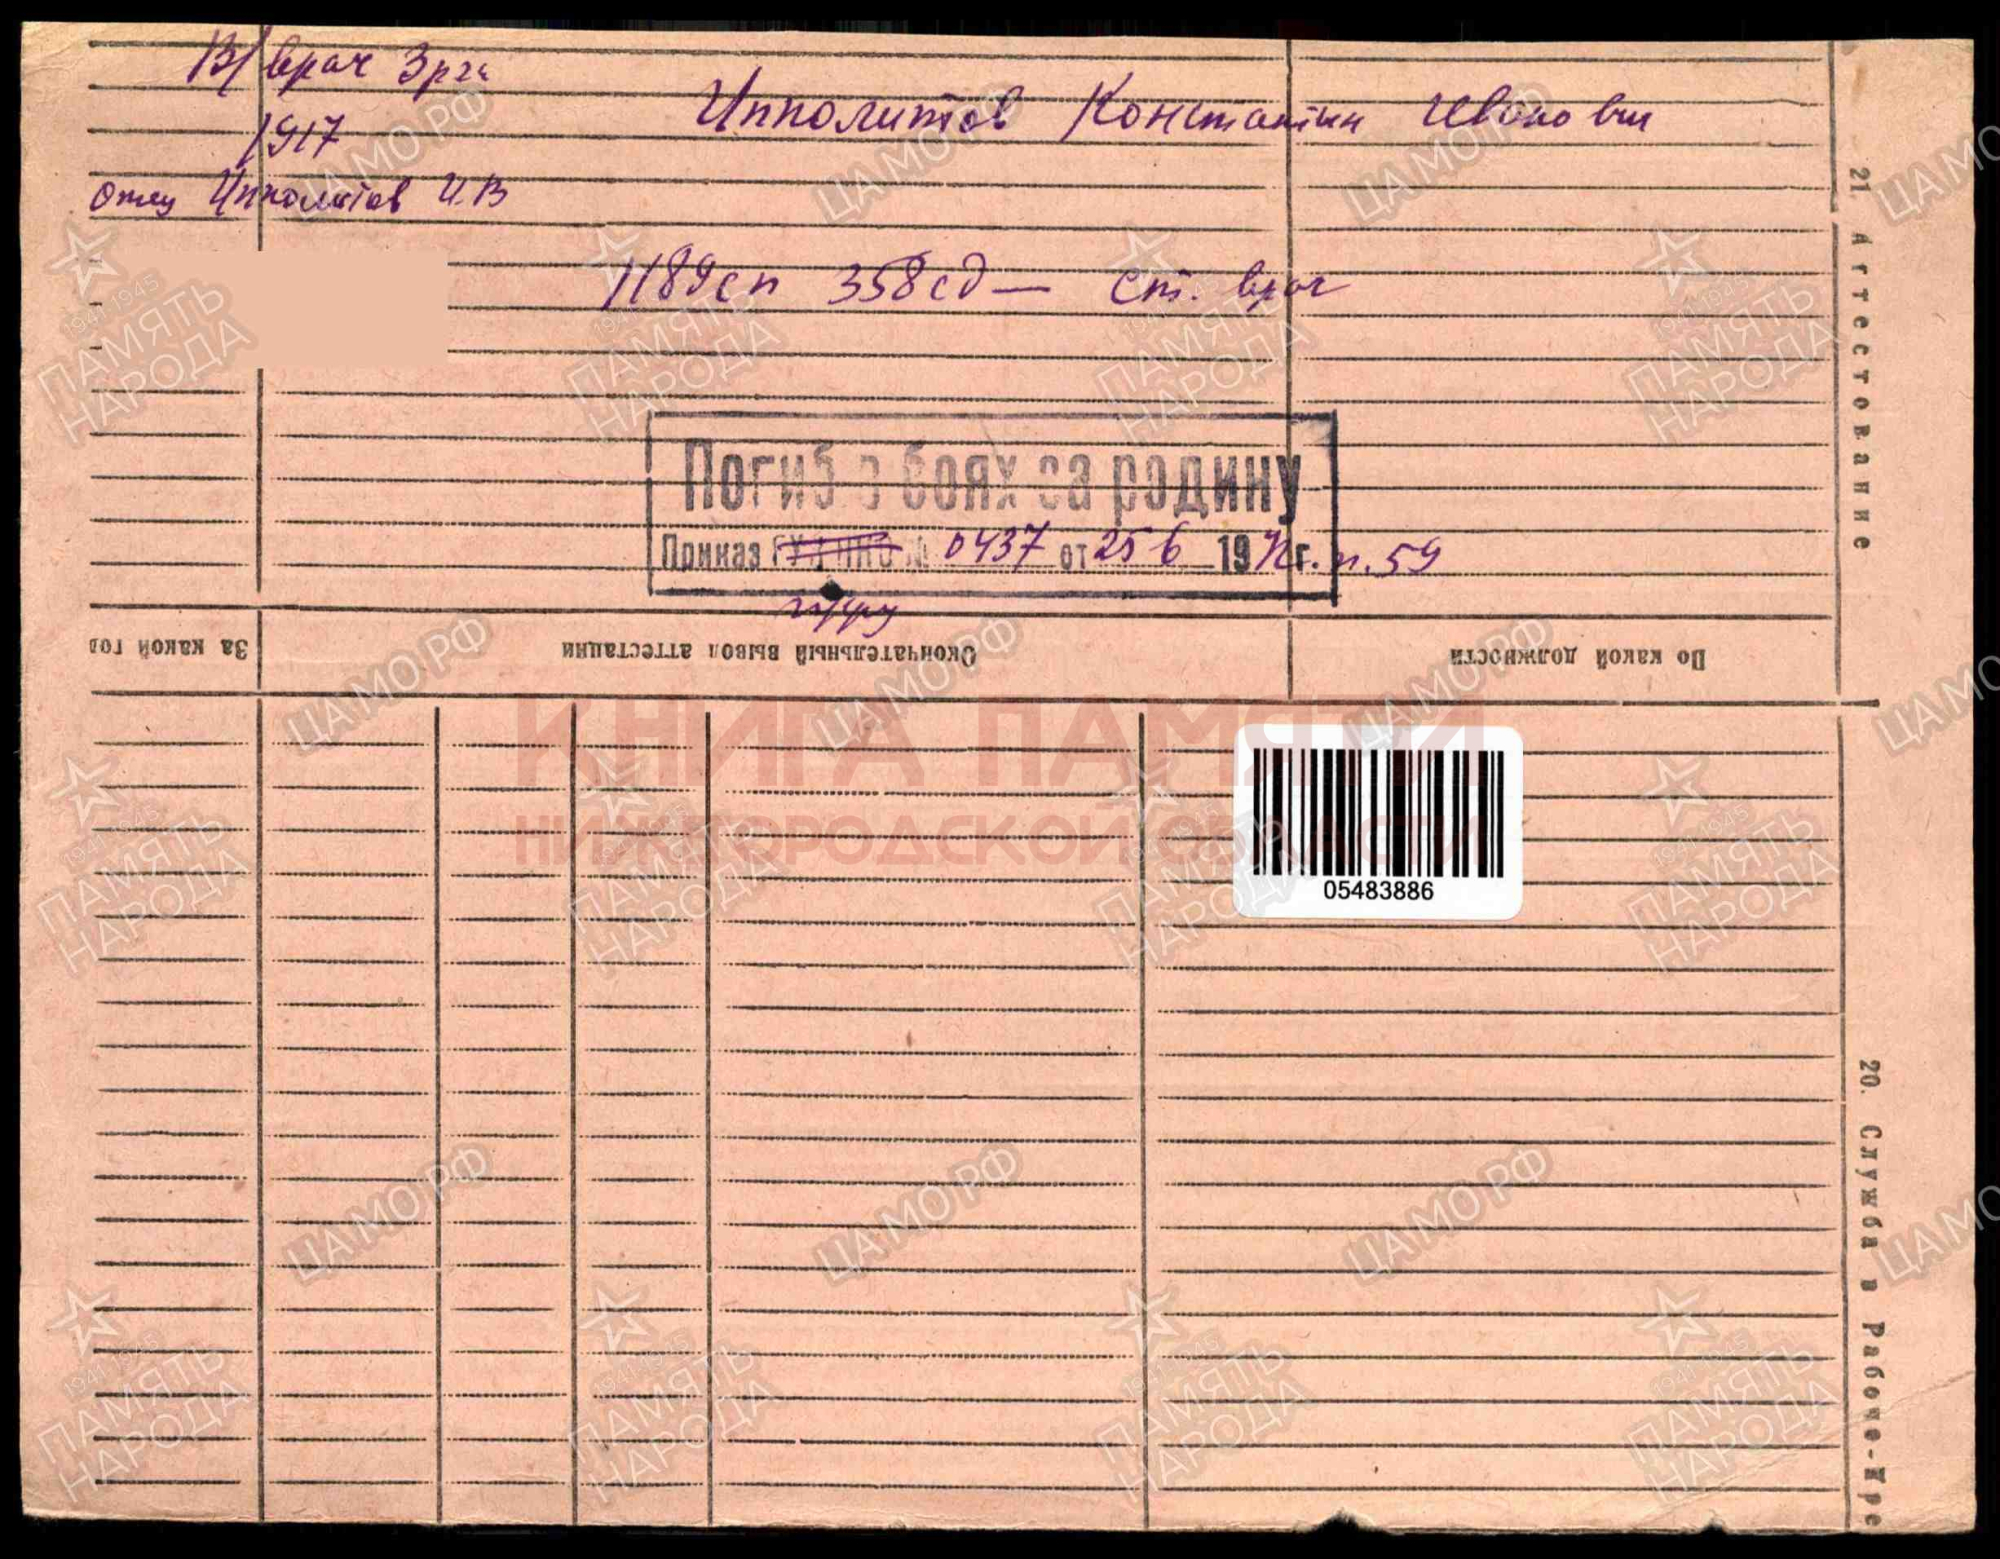 В/врач 3 рга
Ипполитов Константин Иванович
1917
отец Ипполитов И.В
1189сп 358сд — ст. врач
Погиб в боях за родину
Приказ ГУК НКО № 0437 от 25 6 194 г. п.59
21. Аттестование
За какой год
Окончательный вывод аттестации
По какой должности
КНИГА ПАМЯТИ
НИЖЕГОРОДСКОЙ ОБЛАСТИ
05483886
20. Служба в Рабоче-Кре
ЦАМО.РФ
1941-1945
ПАМЯТЬ
НАРОДА